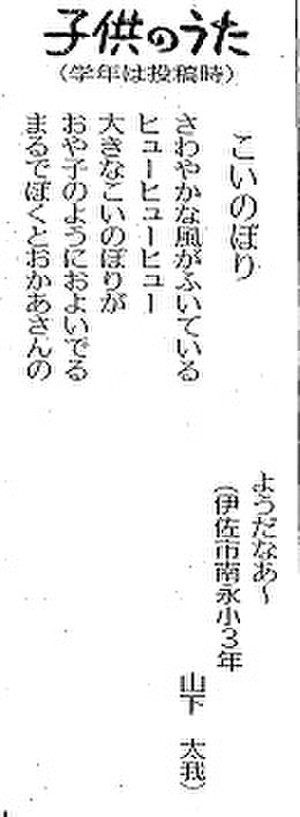 子供のうた
(学年は投稿時)
こいのぼり
さわやかな風がふいている
ヒューヒューヒュー
大きなこいのぼりが
おや子のようにおよいでる
まるでぼくとおかあさんの
ようだなあ〜
(伊佐市南永小3年
山下 太我)